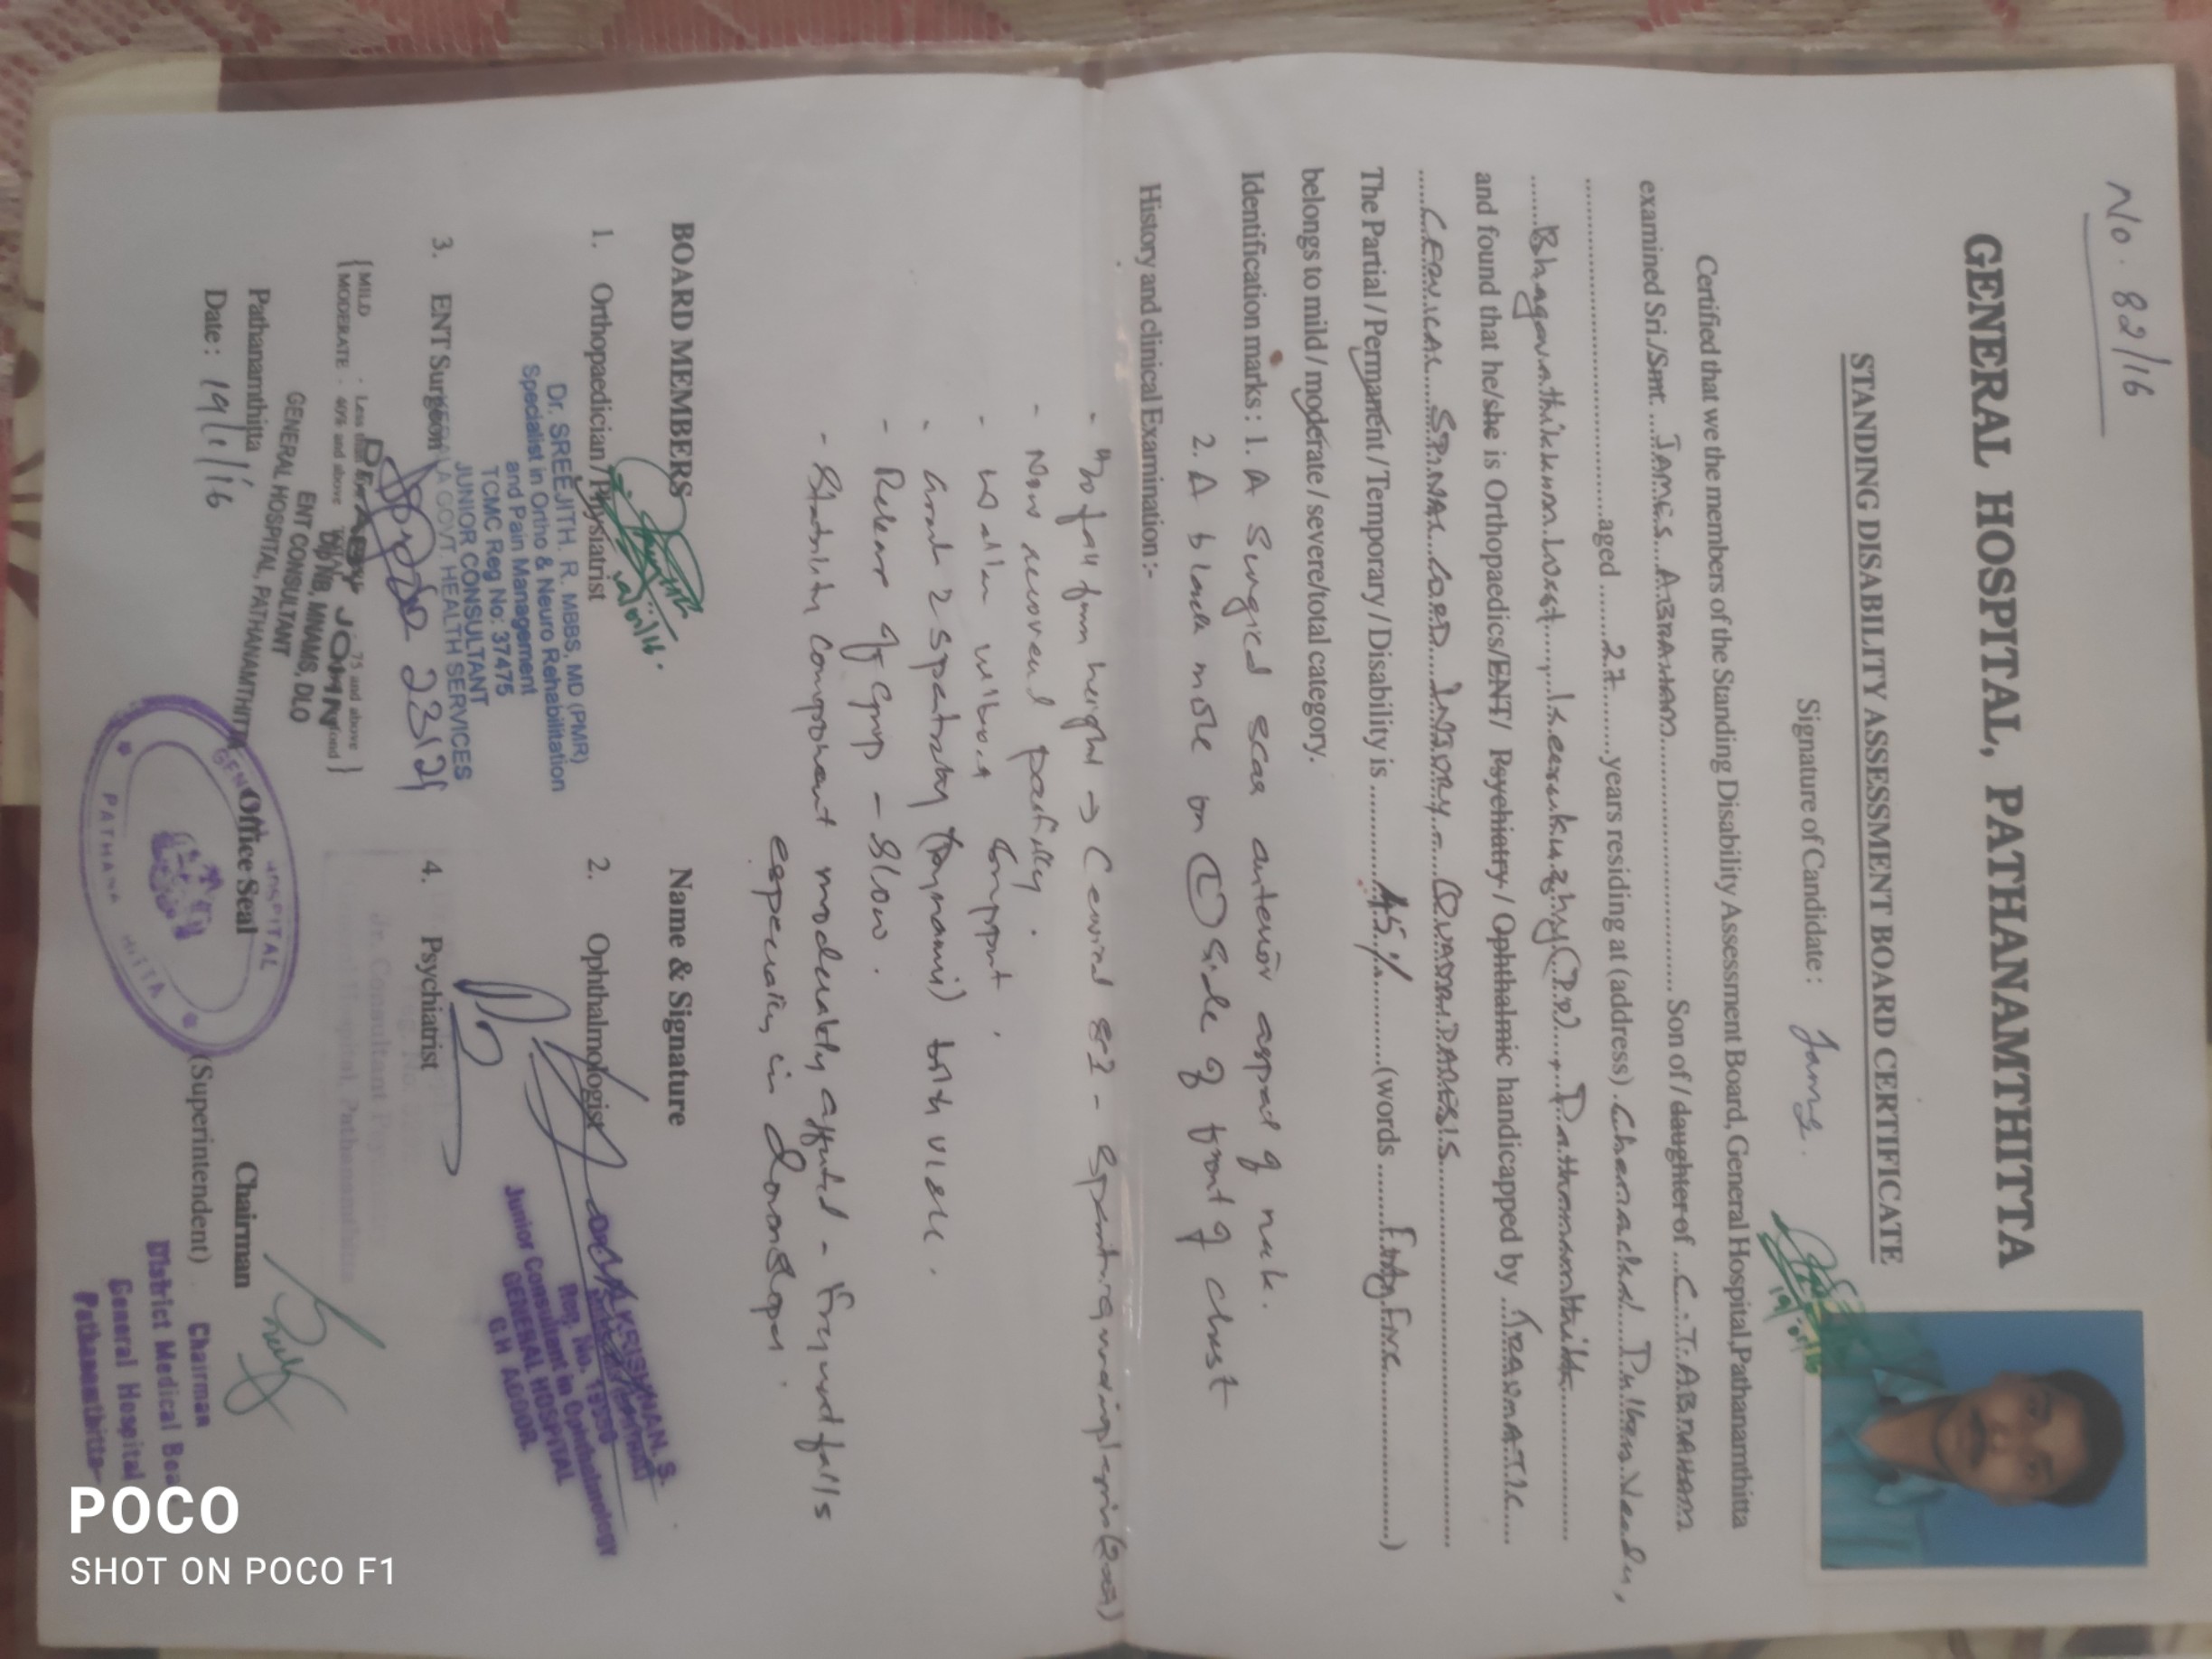 No. 82/16
GENERAL HOSPITAL, PATHANAMTHITTA
STANDING DISABILITY ASSESSMENT BOARD CERTIFICATE
Signature of Candidate :
Certified that we the members of the Standing Disability Assessment Board, General Hospital,Pathanamthitta
examined Sri./Smt. ...JAMES...ABRAHAM........ Son of / daughter of ...C.T.ABRAHAM
........aged ......27.......years residing at (address)
.......
and found that he/she is Orthopaedics/ENT/ Psychiatry / Ophthalmic handicapped by ...TRAUMATIC....
.....CERVICAL....SPINAL..CORD....INJURY.-....QUADRIPARESIS........
The Partial / Permanent / Temporary / Disability is ..........45%..........(words ......Forty Five..........)
belongs to mild / moderate / severe/total category.
Identification marks : 1. A surgical scar anterior aspect of neck.
2. A black mole on (L) side of front of chest
History and clinical Examination :-
- fall from height → Cervical
- Now recovered partially.
- walks without support.
- Grade 2 spasticity (Dynamic) both
- Release of Grip - Slow.
- Stability component moderately affected - Frequent falls
especially in
BOARD MEMBERS
Name & Signature
1. Orthopaedician / Physiatrist
2. Ophthalmologist
Dr. SREEJITH. R. MBBS, MD (PMR)
Specialist in Ortho & Neuro Rehabilitation
and Pain Management
TCMC Reg No: 37475
JUNIOR CONSULTANT
KERALA GOVT. HEALTH SERVICES
KRISHNAN. S.
Junior Consultant in Ophthalmology
GENERAL HOSPITAL
3. ENT Surgeon
4. Psychiatrist
23124
JOHN
DNB, MNAMS, DLO
ENT CONSULTANT
GENERAL HOSPITAL, PATHANAMTHITTA
{ MILD : Less
75 and above
MODERATE - 40% and above
Pathanamthitta
Office Seal
Chairman
Date : 19/1/16
(Superintendent)
GENERAL HOSPITAL
PATHANAMTHITTA
Chairman
District Medical Board
General Hospital
Pathanamthitta
POCO
SHOT ON POCO F1